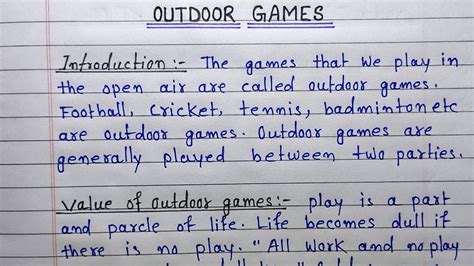 OUTDOOR GAMES
Introduction :- The games that we play in
the open air are called outdoor games.
Football, Cricket, tennis, badminton etc
are outdoor games. Outdoor games are
generally played between two parties.
Value of outdoor games:- play is a part
and parcle of life. Life becomes dull if
there is no play. "All work and no play